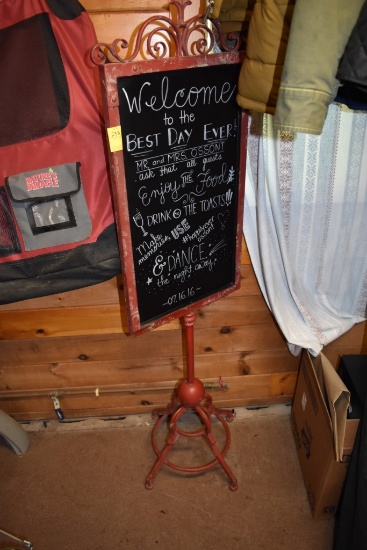 Welcome
to the
BEST DAY EVER!
MR and MRS OSSONT
ask that all guests
Enjoy THE Food
DRINK TO THE TOASTS!!!
Make memories, USE
#hashtag
& DANCE
the night away
~07.16.16~